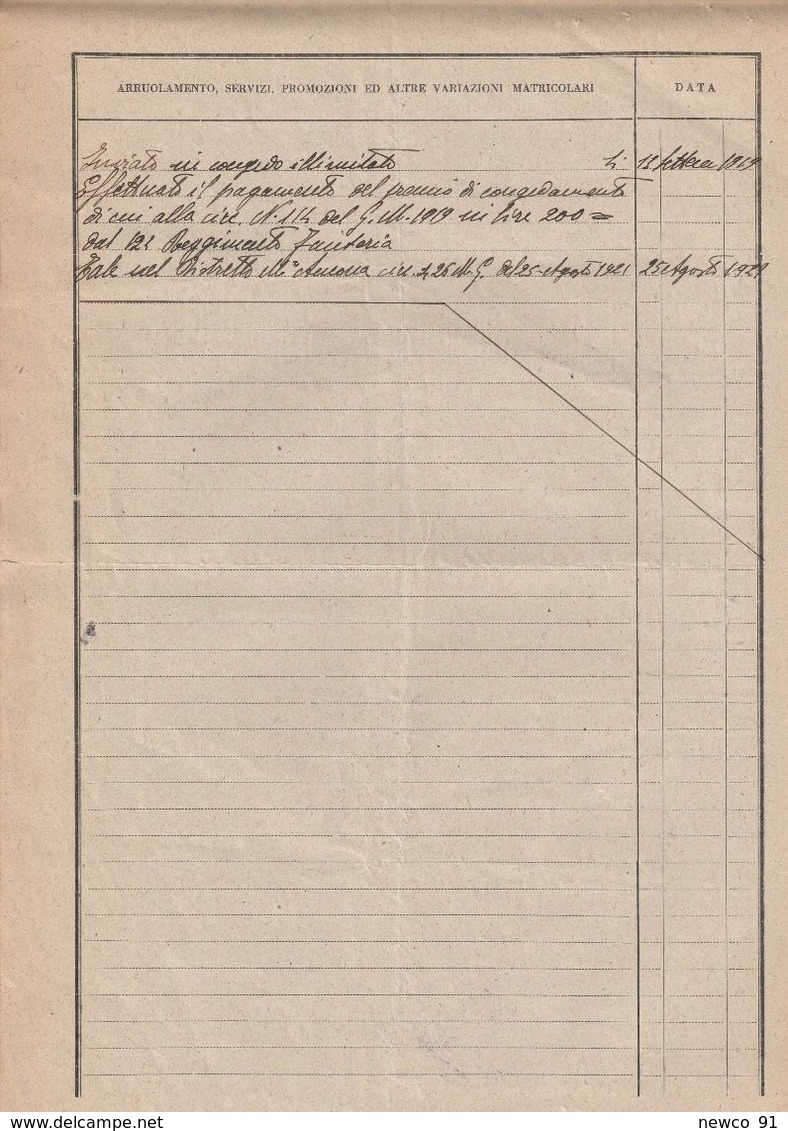 ARRUOLAMENTO, SERVIZI, PROMOZIONI ED ALTRE VARIAZIONI MATRICOLARI
DATA
Inviato in congedo illimitato li 12 1919
Effettuato il pagamento del premio di congedamento
di cui alla circ. N. 114 del G. M. 1919 in lire 200=
dal 121 Reggimento Fanteria
Tale nel Distretto M.re Ancona circ. 426 M. G. del 25-Agosto 1921 25 Agosto 1921
delcampe.net
newco 91